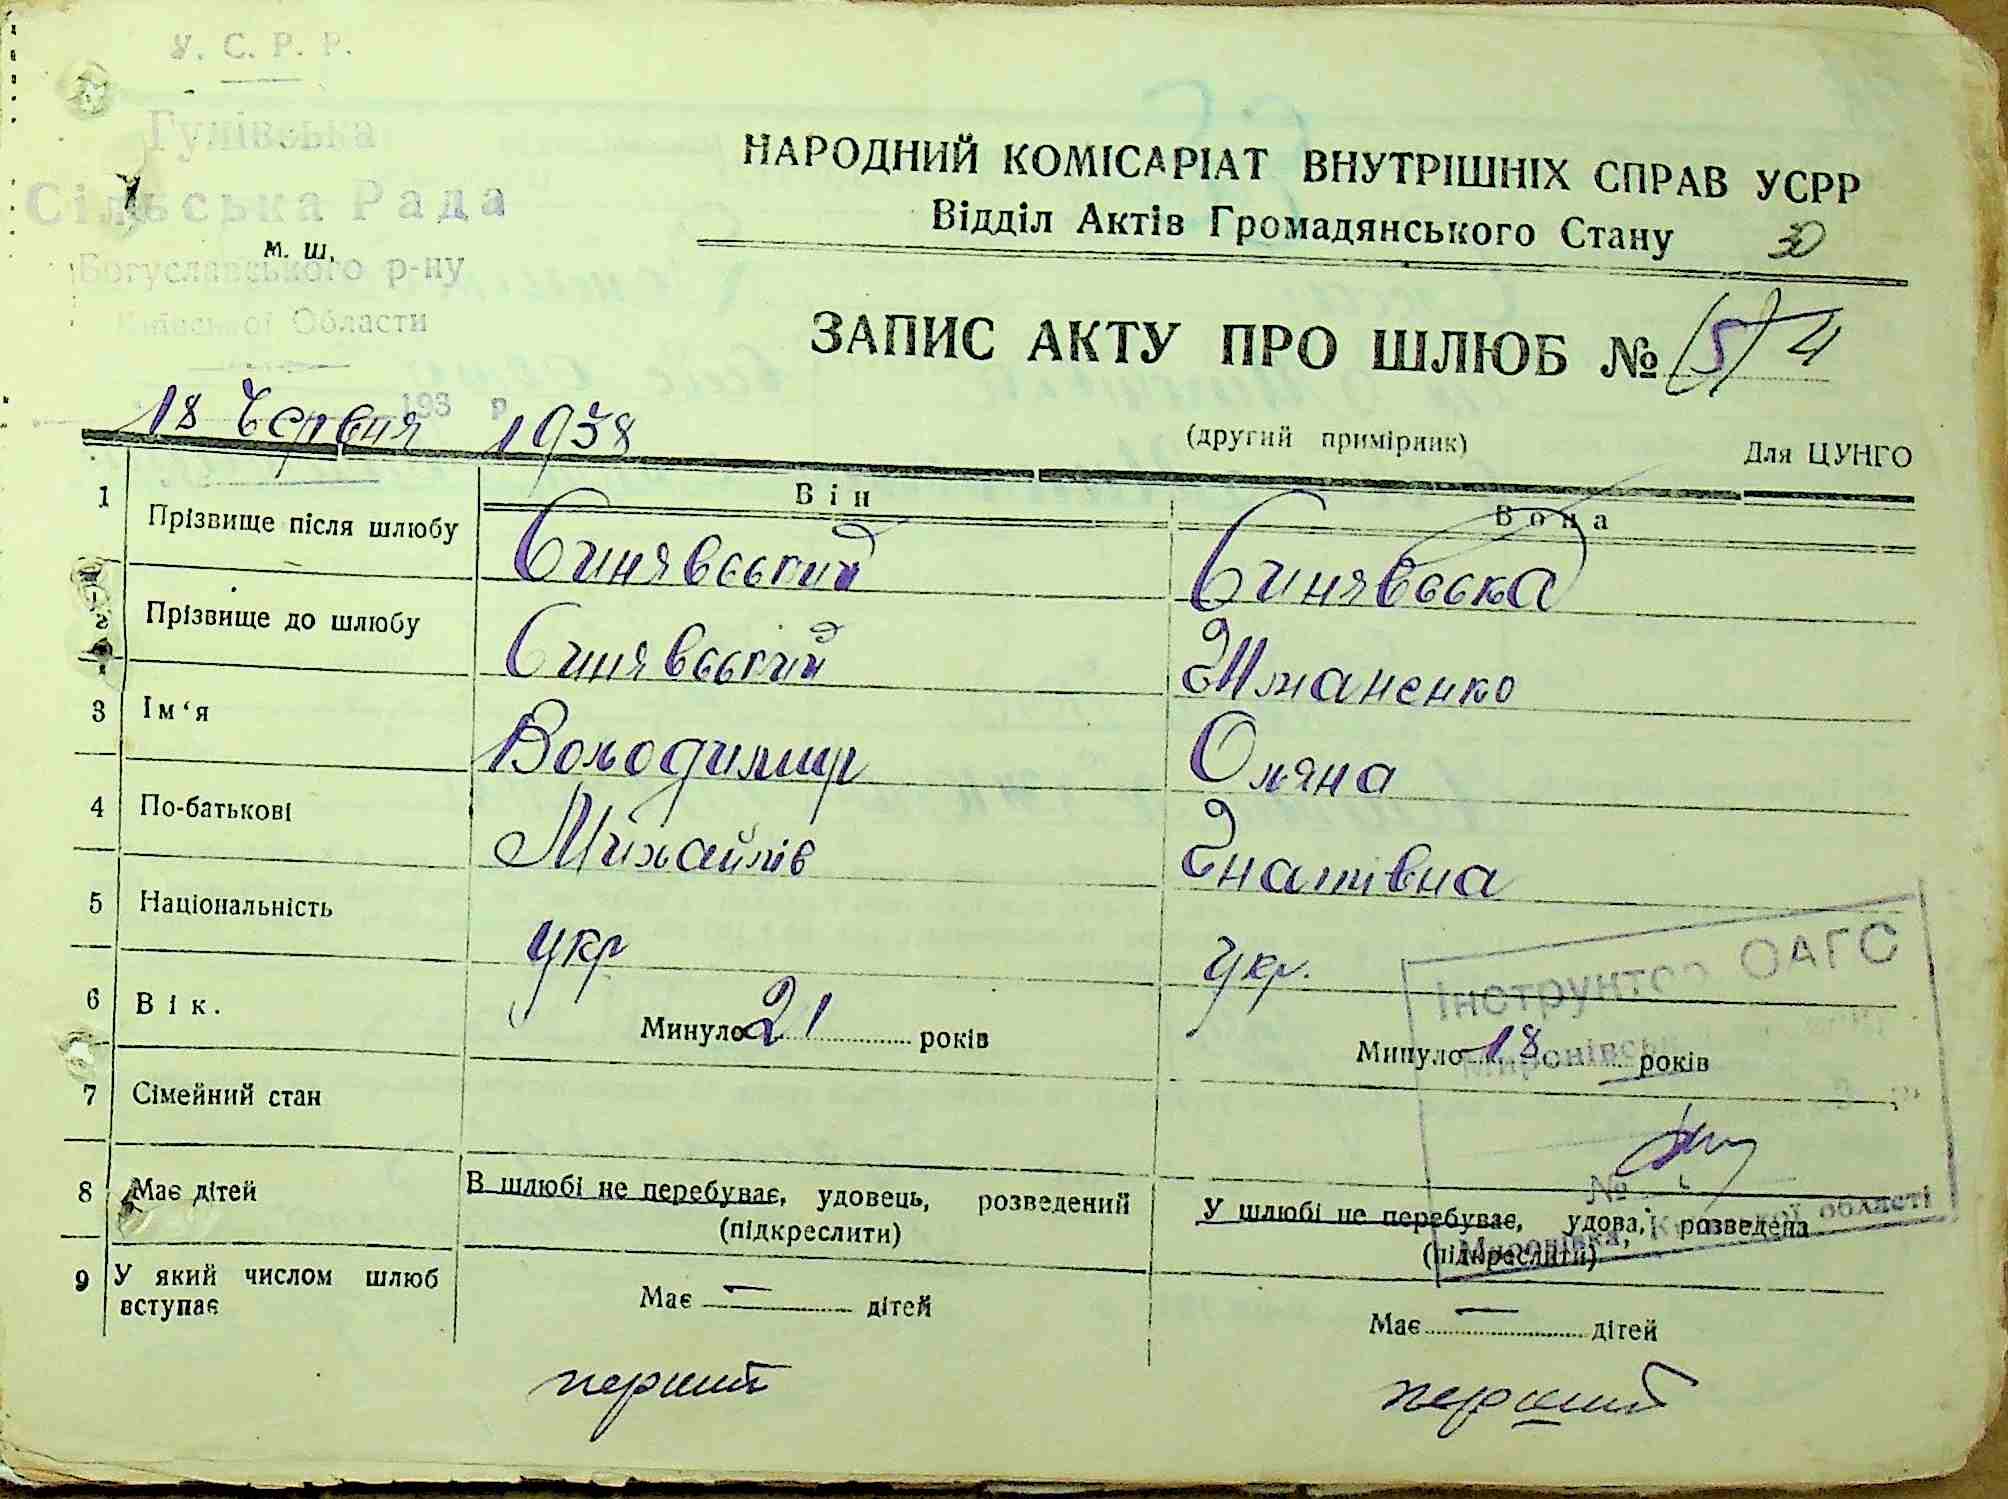 У. С. Р. Р.
Гулівська
Сільська Рада
м. ш.
Богуславського р-ну
Київської Области
НАРОДНИЙ КОМІСАРІАТ ВНУТРІШНІХ СПРАВ УСРР
Відділ Актів Громадянського Стану 30
ЗАПИС АКТУ ПРО ШЛЮБ № (5) 4
193 р
18 Червня 1938
(другий примірник) Для ЦУНГО
Він Вона
1 Прізвище після шлюбу Синявський Синявська
2 Прізвище до шлюбу Синявський
3 Ім‘я Володимир Оляна
4 По-батькові Михайлів Гнатівна
5 Національність укр укр.
6 Вік. Минуло 21 років Минуло 18 років
7 Сімейний стан
В шлюбі не перебуває, удовець, розведений (підкреслити)
У шлюбі не перебуває, удова, розведена (підкреслити)
8 Має дітей Має — дітей Має — дітей
9 У який числом шлюб
вступає
перший перший
Інструктор ОАГС
Миронівськ
№
Миронівка, Київської області